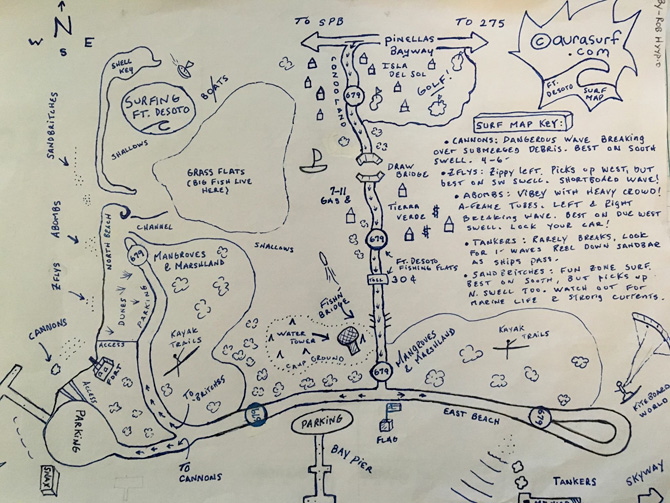 By-ROB HYPPO
TO SPB
TO 275
N
W
E
S
PINELLAS
BAYWAY
©aurasurf
.com
FT.
DESOTO
SURF
MAP
SHELL
KEY
SURFING
FT. DESOTO
BOATS
ISLA
DEL SOL
GOLF!
679
SHALLOWS
SANDBRITCHES
GRASS FLATS
(BIG FISH LIVE
HERE)
DRAW
BRIDGE
7-11
GAS &
TIERRA
VERDE $
$
679
SURF MAP KEY:
• CANNONS: DANGEROUS WAVE BREAKING
OVER SUBMERGED DEBRIS. BEST ON SOUTH
SWELL. 4-6'
• ZFLYS: Zippy LEFT. PICKS UP WEST, BUT
BEST ON SW SWELL. SHORTBOARD WAVE!
• ABOMBS: VIBEY WITH HEAVY CROWD!
A-FRAME TUBES. LEFT & RIGHT
BREAKING WAVE. BEST ON DUE WEST
SWELL. LOCK YOUR CAR!
• TANKERS: RARELY BREAKS, LOOK
FOR IT WAVES REEL DOWN SANDBAR
AS SHIPS PASS.
• SANDBRITCHES: FUN ZONE SURF.
BEST ON SOUTH, BUT PICKS UP
N. SWELL TOO. WATCH OUT FOR
MARINE LIFE & STRONG CURRENTS.
ABOMBS
NORTH BEACH
CHANNEL
679
MANGROVES
& MARSHLAND
SHALLOWS
FT. DESOTO
FISHING FLATS
TOLL
30¢
ZFLYS
DUNES
PARKING
FISHN'
BRIDGE
WATER
TOWER
CAMP GROUND
KAYAK
TRAILS
MANGROVES
& MARSHLAND
KAYAK
TRAILS
CANNONS
ACCESS
FORT
ACCESS
679
KITEBOARD
WORLD
TO BRITCHES
679
PARKING
TO
CANNONS
PARKING
BAY PIER
FLAG
EAST BEACH
679
SNAX
TANKERS
SKYWAY